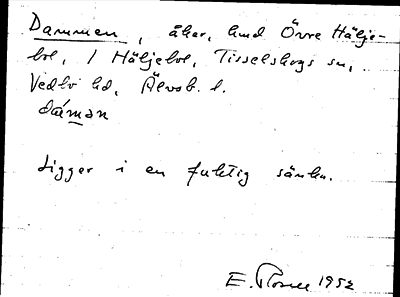 Dammen, åker, hmd Övre Hälje-
bol, 1 Häljebol, Tisselskogs sn,
Vedbo hd, Älvsb. l.
dàman
Ligger i en fuktig sänka.
E. 1952